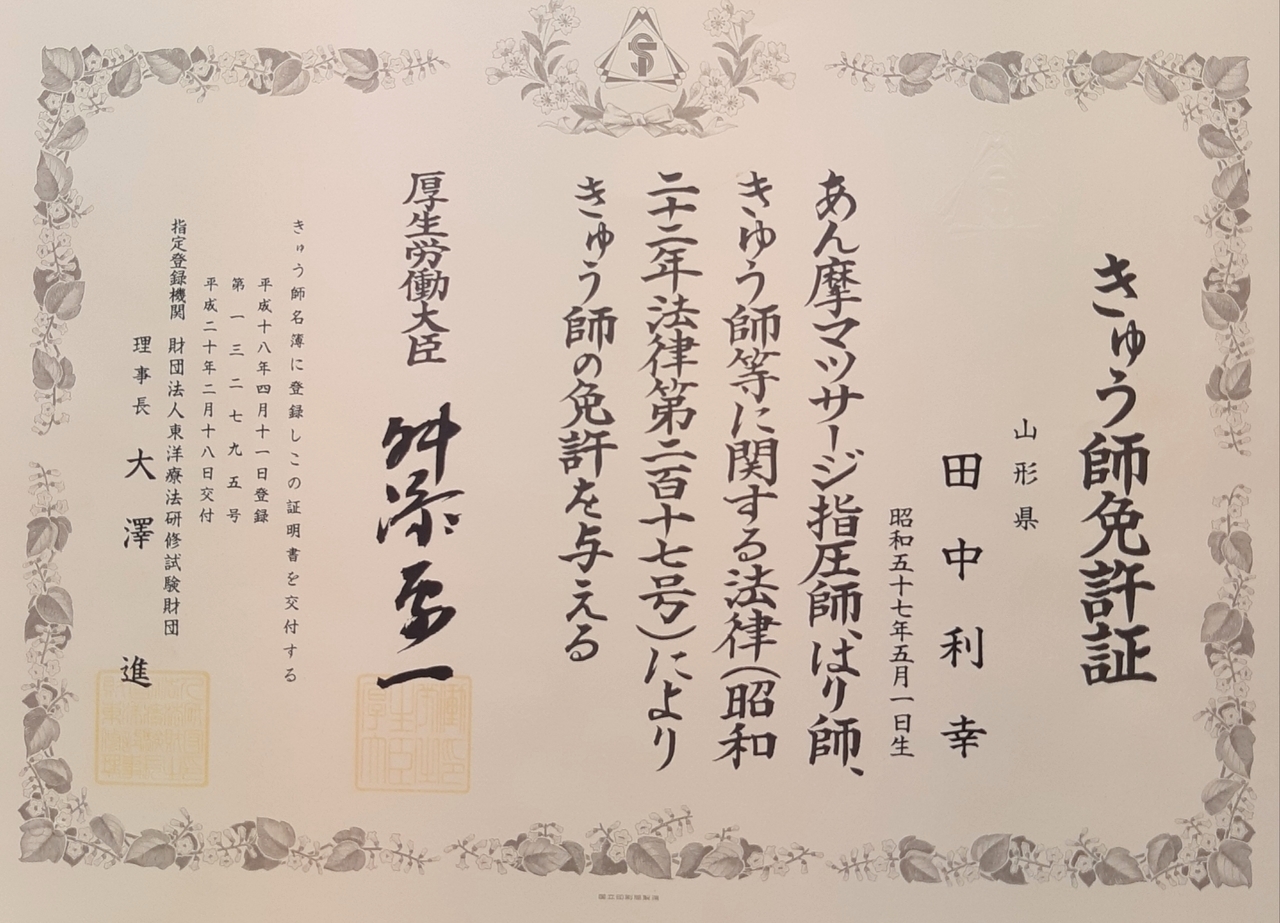 きゅう師免許証
山形県
田中利幸
昭和五十七年五月一日生
あん摩マツサージ指圧師、はり師、
きゆう師等に関する法律(昭和
二十二年法律第二百十七号)により
きゅう師の免許を与える
厚生労働大臣 舛添要一
きゅう師名簿に登録しこの証明書を交付する
平成十八年四月十一日登録
第一三二七九五号
平成二十年二月十八日交付
指定登録機関 財団法人東洋療法研修試験財団
理事長 大澤進
国立印刷局製造